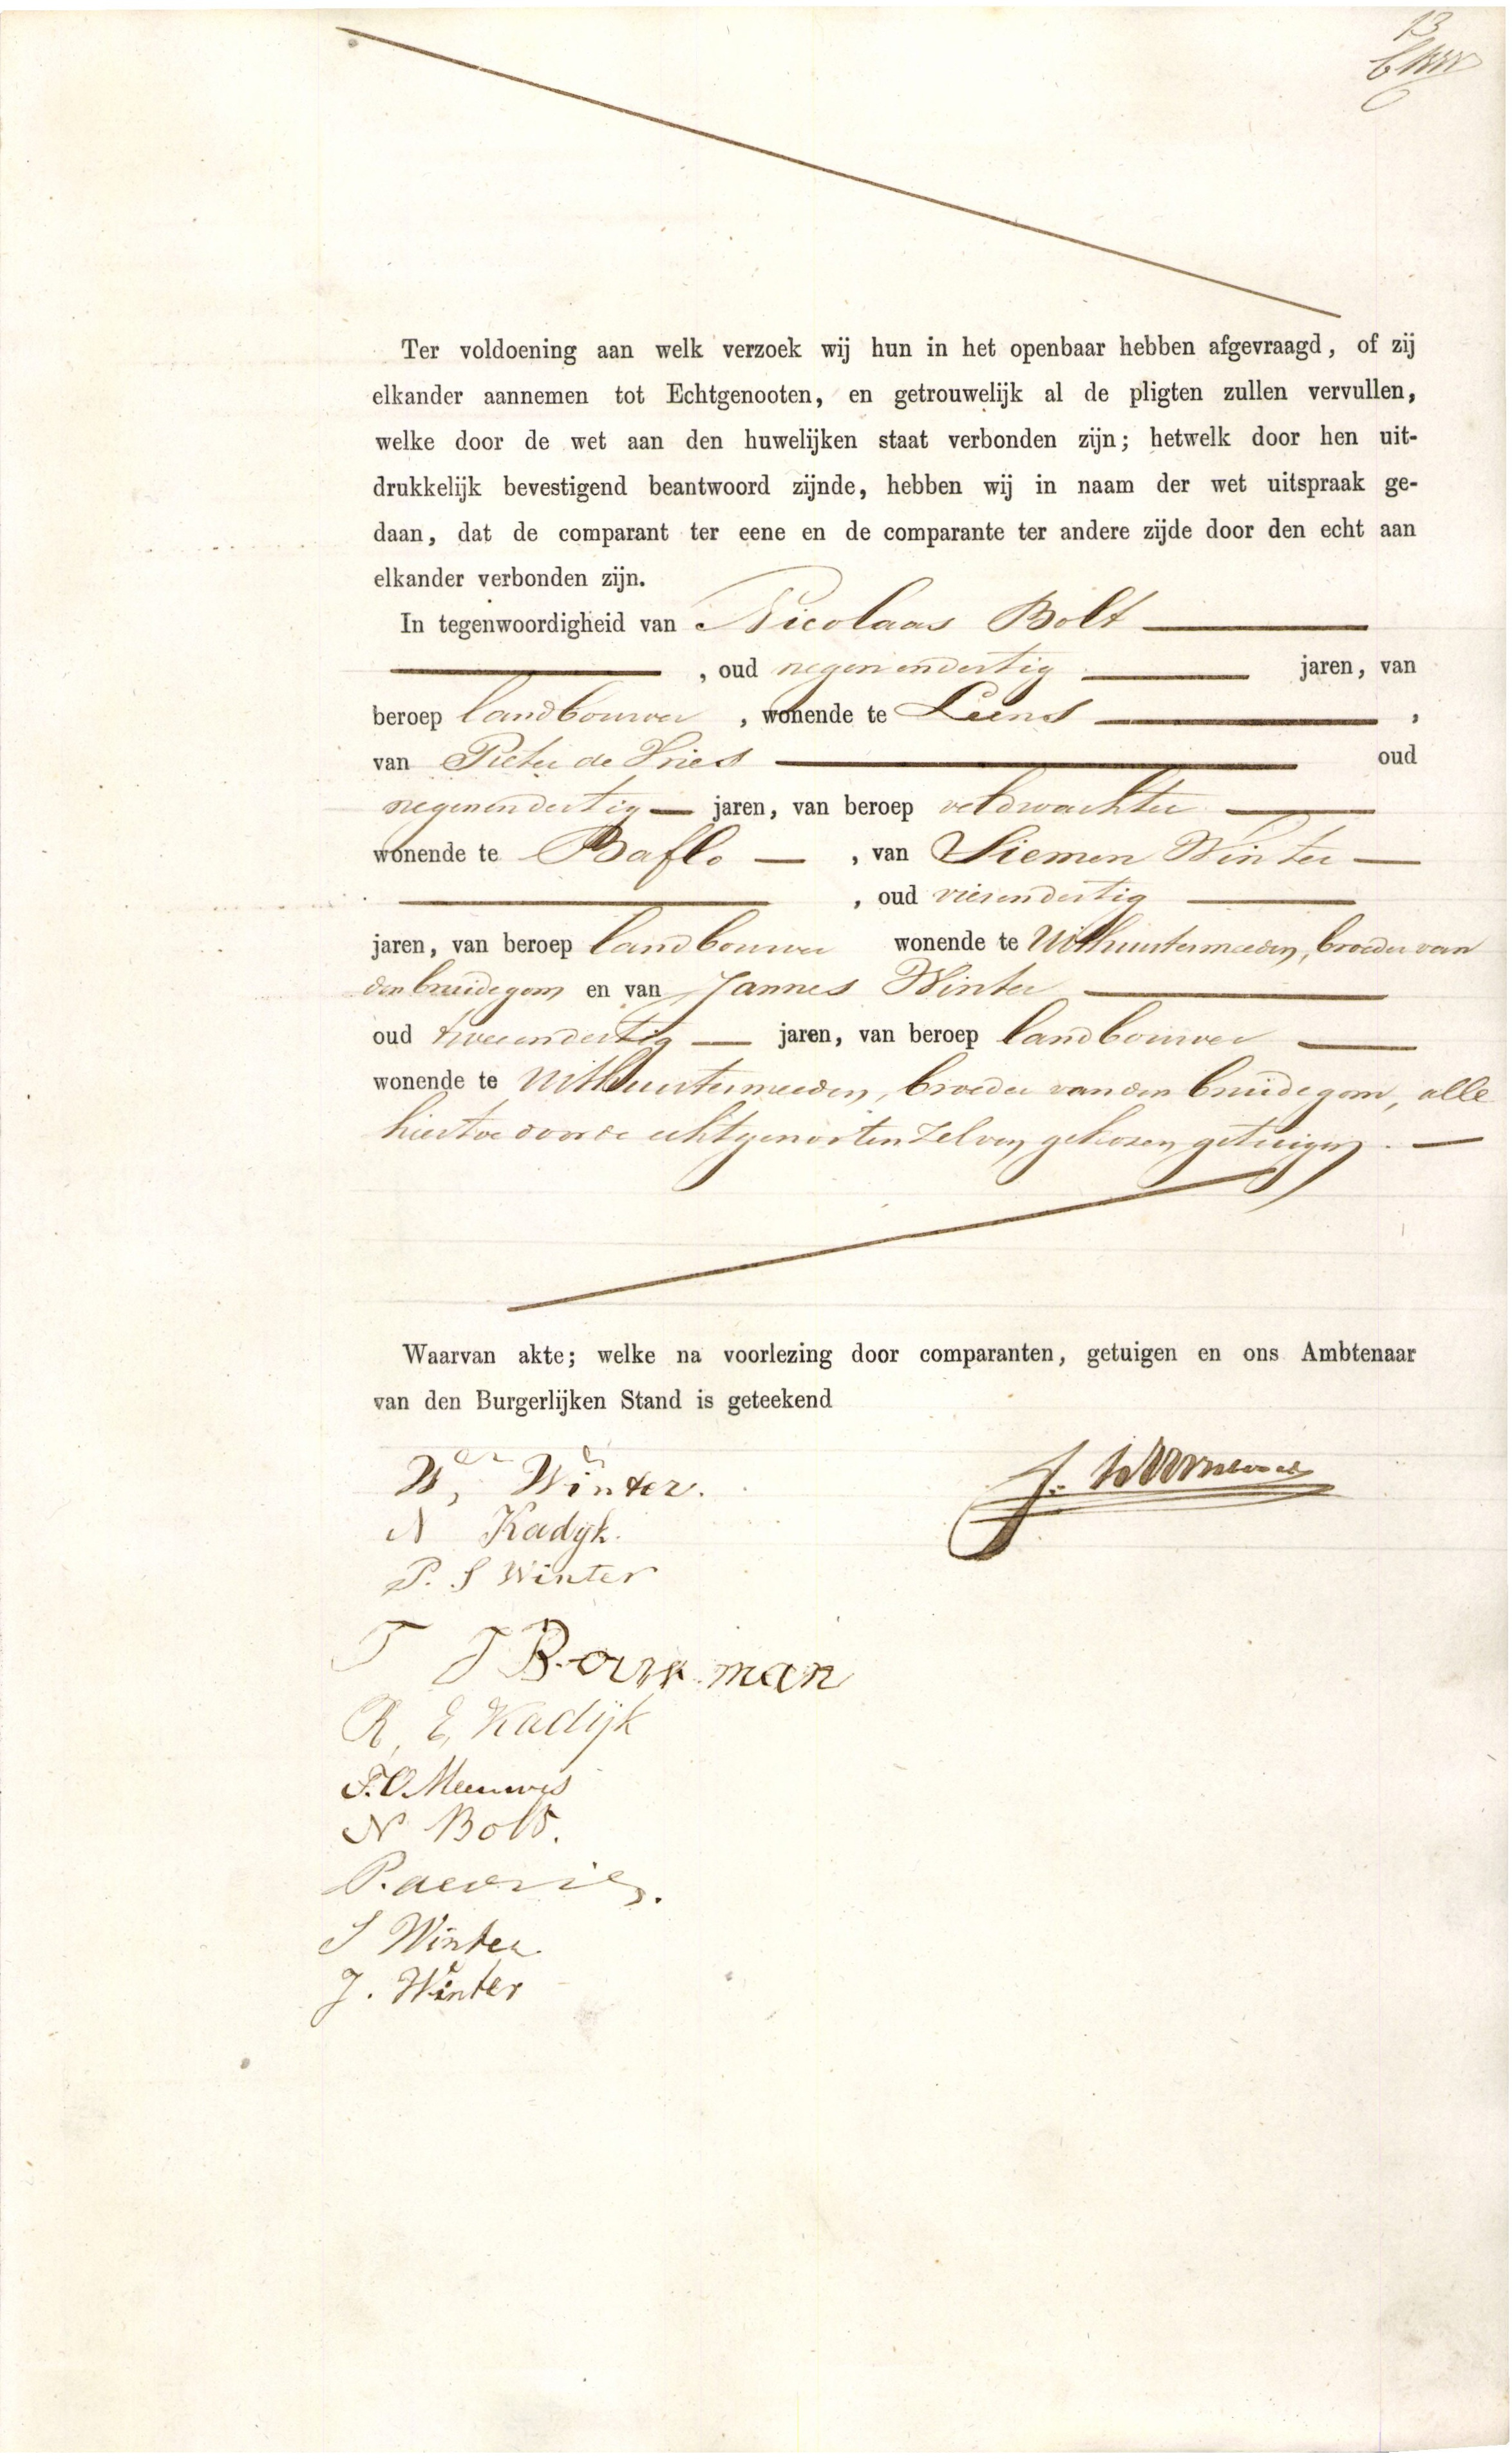 13
Ter voldoening aan welk verzoek wij hun in het openbaar hebben afgevraagd, of zij
elkander aannemen tot Echtgenooten, en getrouwelijk al de pligten zullen vervullen,
welke door de wet aan den huwelijken staat verbonden zijn; hetwelk door hen uit-
drukkelijk bevestigend beantwoord zijnde, hebben wij in naam der wet uitspraak ge-
daan, dat de comparant ter eene en de comparante ter andere zijde door den echt aan
elkander verbonden zijn.
In tegenwoordigheid van Nicolaas Bolt
, oud negenendertig jaren, van
beroep landbouwer , wonende te Leens ,
van Pieter de Vries oud
negenendertig jaren, van beroep veldwachter
wonende te Baflo , van Siemen Winter
, oud vierendertig
jaren, van beroep landbouwer wonende te Uithuistermeeden, broeder van
den bruidegom en van Jannes Winter
oud tweeendertig jaren, van beroep landbouwer
wonende te Uithuistermeeden, broeder van den bruidegom, alle
hiertoe door de echtgenooten zelven gekozen getuigen.
Waarvan akte; welke na voorlezing door comparanten, getuigen en ons Ambtenaar
van den Burgerlijken Stand is geteekend
W, Winter.
N Kadyk.
P. S Winter
T J Bouwman
R, E, Kadijk
F. O. Meeuwes
N Bolt.
P. de Vries.
S Winter
J. Winter